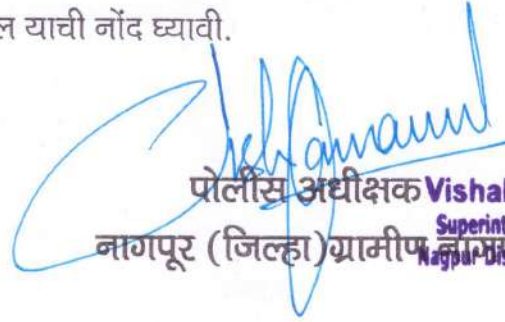 ल याची नोंद घ्यावी.
पोलीस अधीक्षक Vishal
Superint
नागपूर (जिल्हा)ग्रामीण नागपू
Nagpur Dis